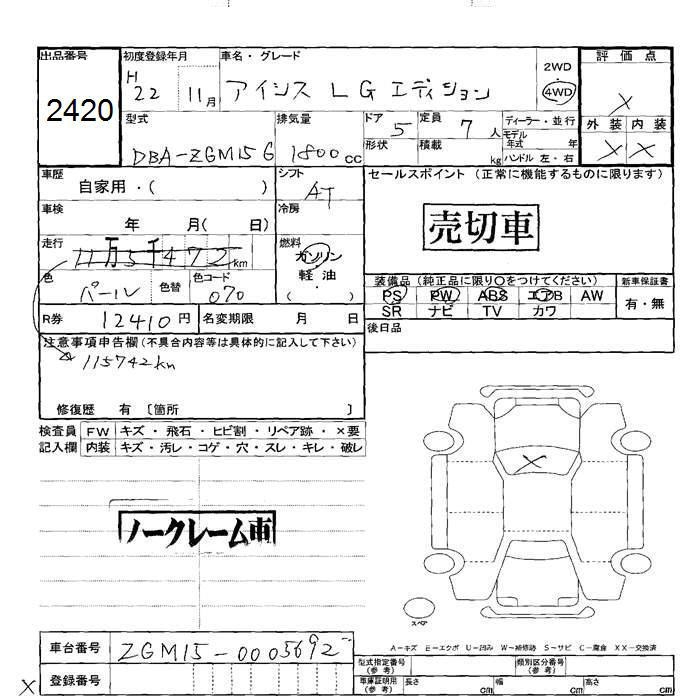 出品番号 初度登録年月 車名・グレード 2WD 評価点
2420 H 22 11月 アイシス L Gエディション 4WD X
型式 排気量 ドア 定員 ディーラー・並行 外装 内装
DBA-ZGM15G 1800cc 5 7人 モデル年式 年 X X
形状 積載 kg ハンドル 左・右
車歴 自家用・( ) シフト AT セールスポイント (正常に機能するものに限ります)
車検 年 月( 日) 冷房
売切車
走行 11万5千472km 燃料 ガソリン 軽油 ( )
色 パール 色替 色コード 070
装備品 (純正品に限り○をつけてください) 新車保証書
PS PW ABS エアB AW 有・無
SR ナビ TV カワ
R券 12410円 名変期限 月 日 後日品
注意事項申告欄 (不具合内容等は具体的に記入して下さい)
115742km
修復歴 有 〔箇所 〕
検査員 FW キズ・飛石・ヒビ割・リペア跡・×要
記入欄 内装 キズ・汚レ・コゲ・穴・スレ・キレ・破レ
X
ノークレーム車
スペア
A-キズ E-エクボ U-凹み W-補修跡 S-サビ C-腐食 XX-交換済
車台番号 ZGM15-0005692
型式指定番号(参考) 類別区分番号(参考)
X 登録番号 車庫証明用(参考) 長さ cm 幅 cm 高さ cm